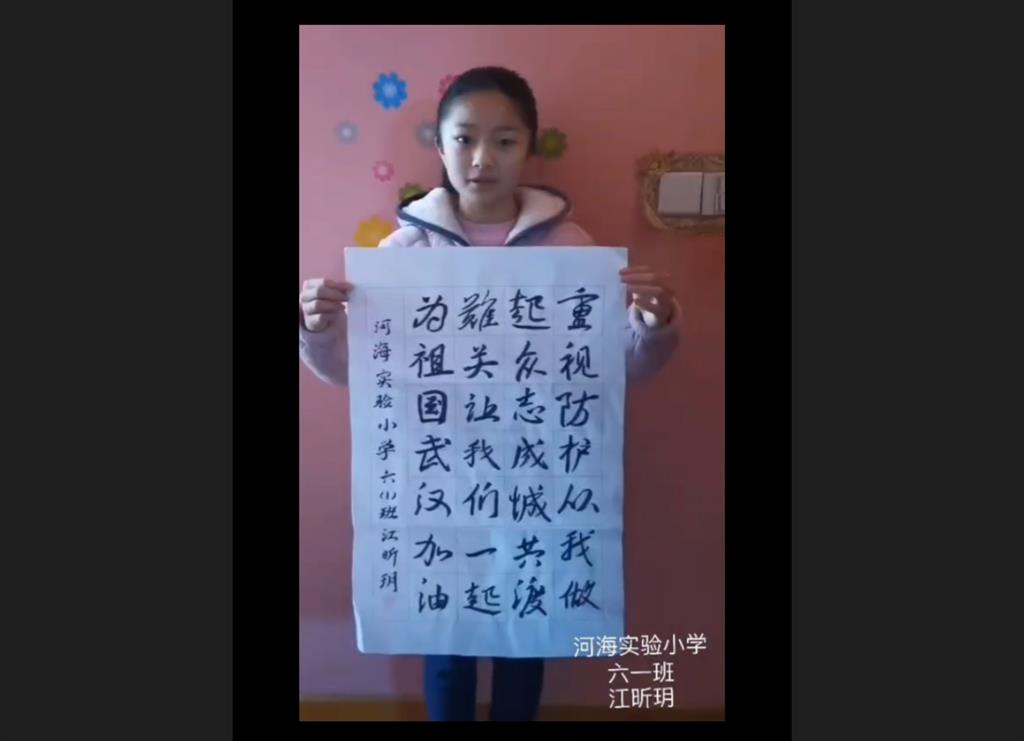 重视防护从我做
起众志成城共渡
難关让我们一起
为祖国武汉加油
河海实验小学六(1)班江昕玥
河海实验小学
六一班
江昕玥